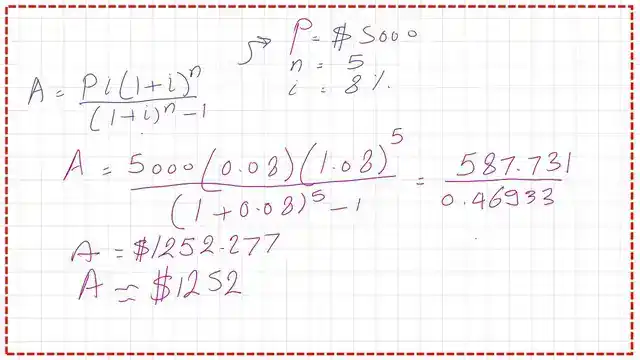 P = $5000
n = 5
i = 8%
A = Pi(1+i)^n / (1+i)^n - 1
A = 5000(0.08)(1.08)^5 / (1+0.08)^5 - 1 = 587.731 / 0.46933
A = $1252.277
A ≈ $1252